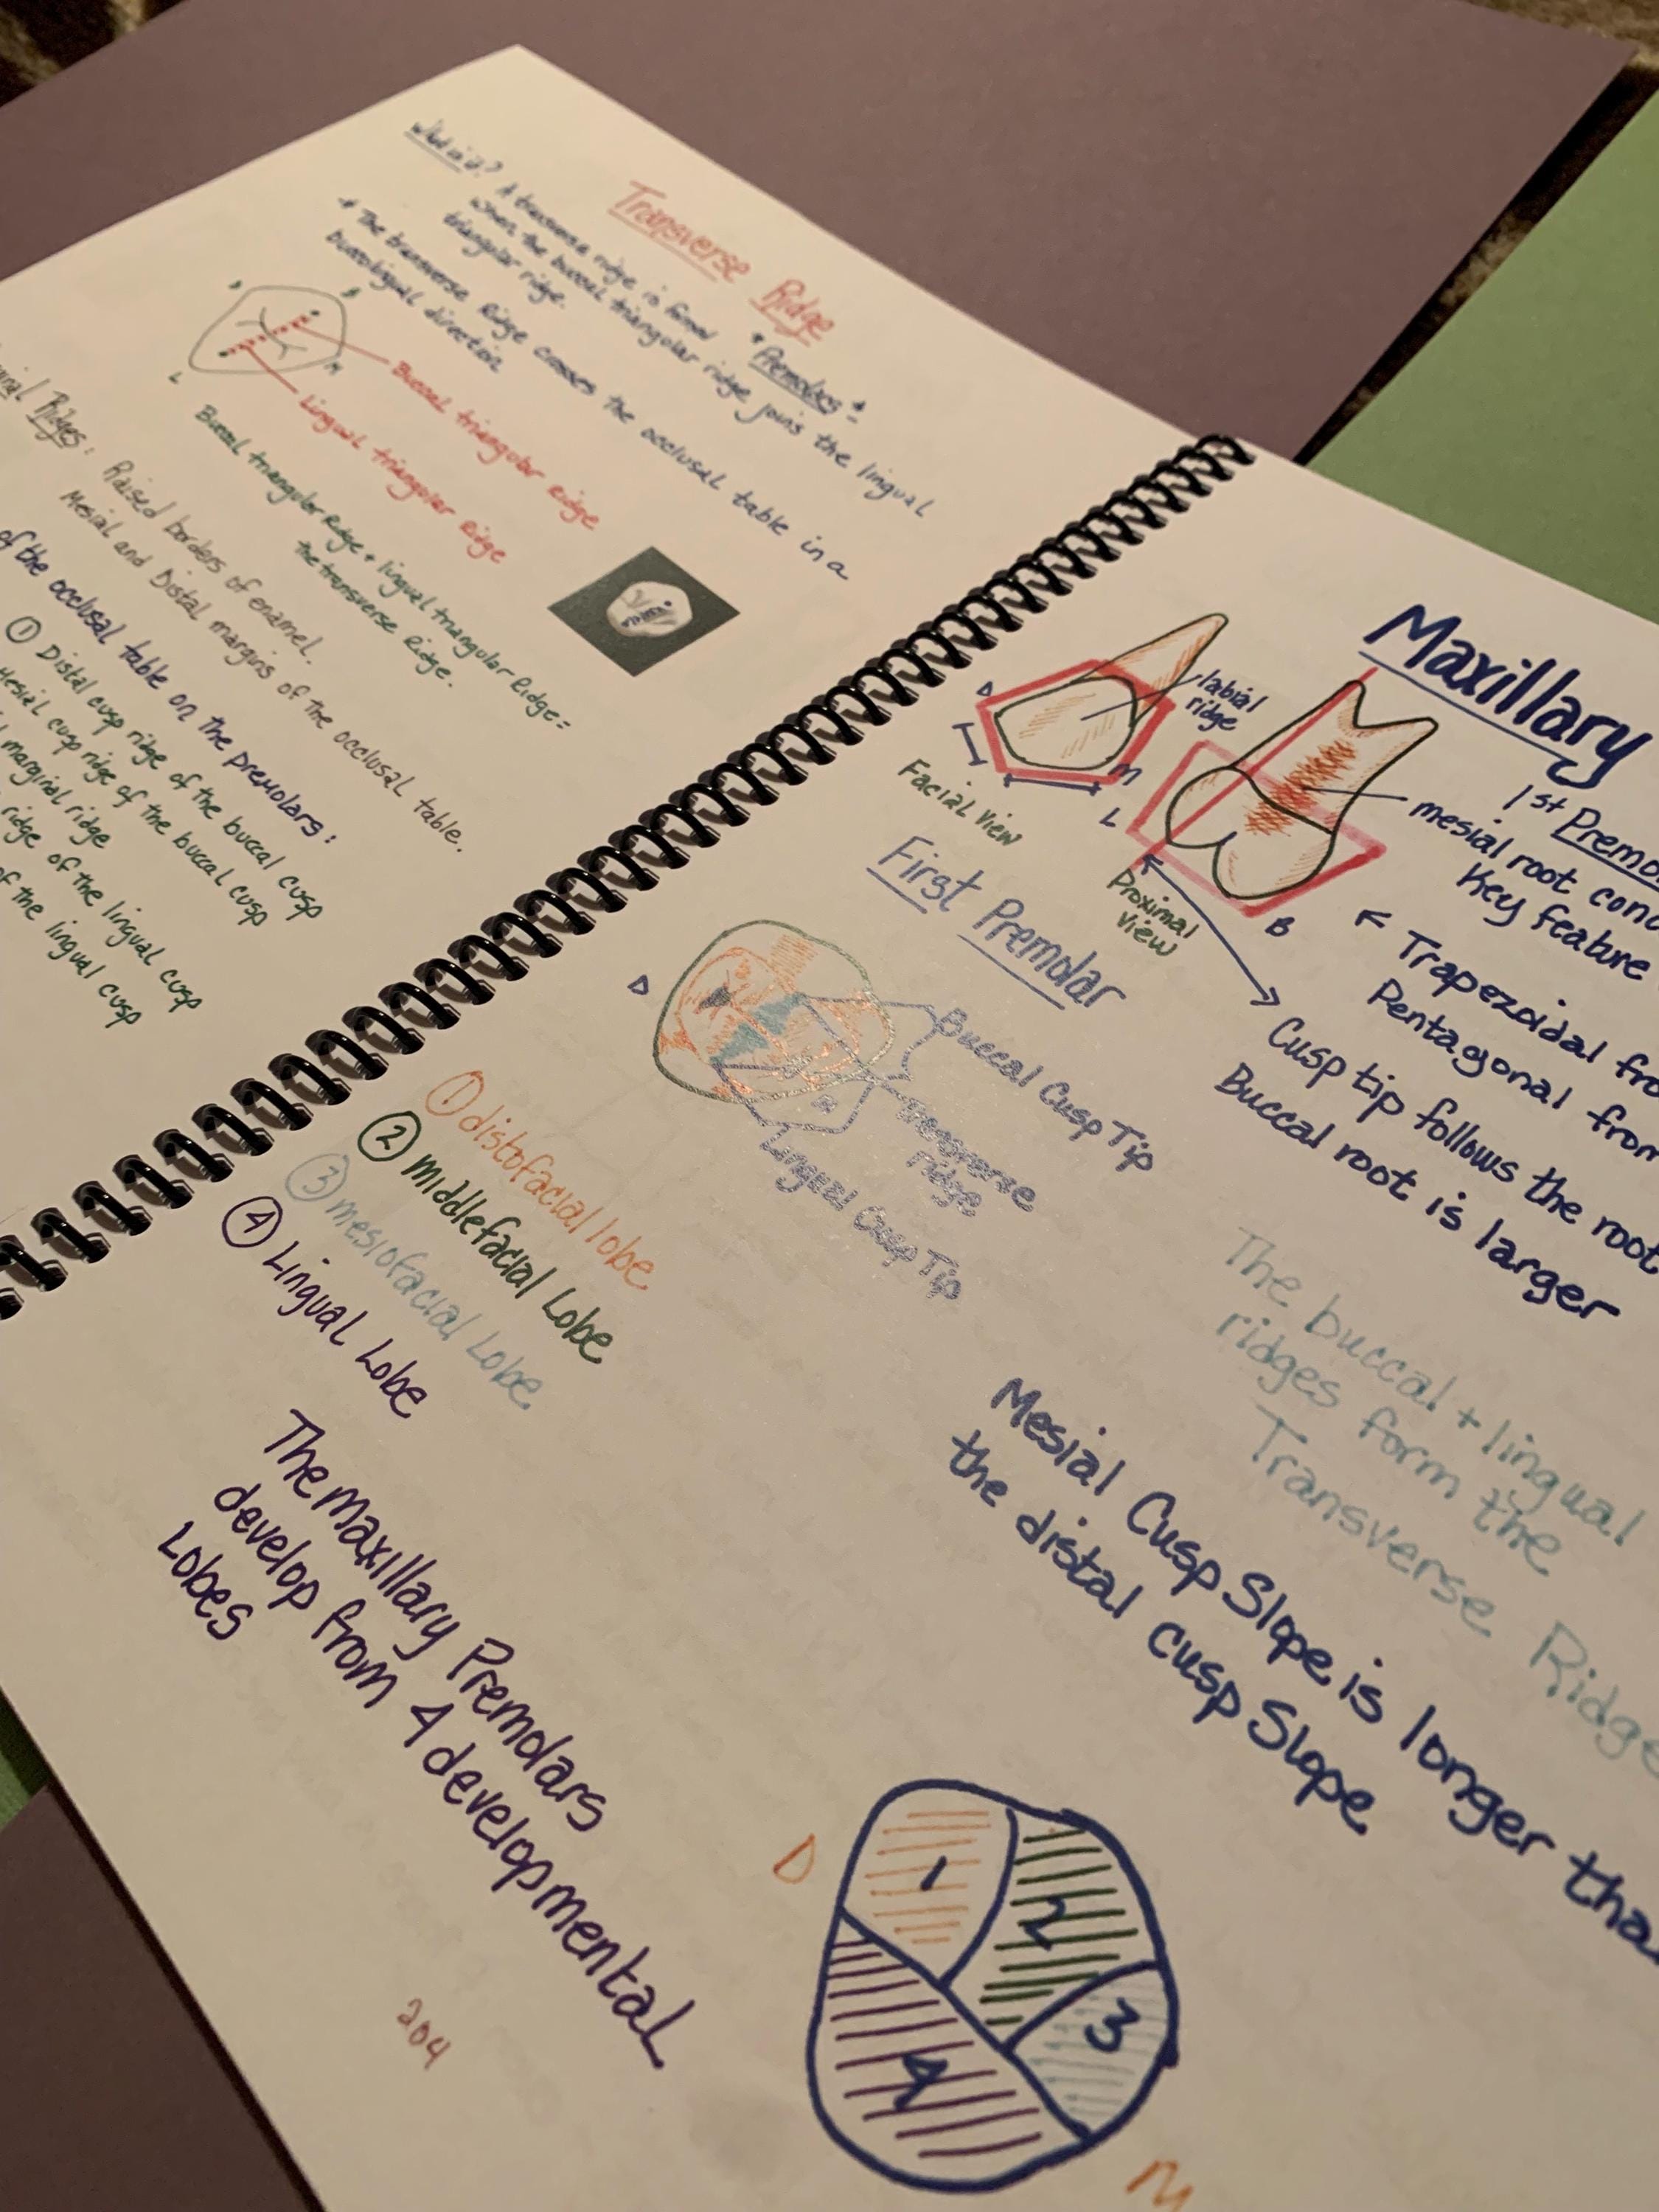 Transverse Ridge
* Premolars *
What is it? A transverse ridge is formed
when the buccal triangular ridge joins the lingual
triangular ridge.
* The transverse Ridge crosses the occlusal table in a
buccolingual direction
B
L
M
Buccal triangular Ridge
Lingual triangular Ridge
Buccal triangular Ridge + lingual triangular Ridge =
the transverse Ridge.
Ridges: Raised borders of enamel.
Mesial and Distal margins of the occlusal table.
of the occlusal table on the premolars:
① Distal cusp ridge of the buccal cusp
Mesial cusp ridge of the buccal cusp
marginal ridge
ridge of the lingual cusp
of the lingual cusp
Maxillary
1st
D
M
labial
ridge
Facial View
L
B
Proximal
View
mesial root
Key feature
Trapezoidal
Pentagonal from
Cusp tip follows the root
Buccal root is larger
First Premolar
D
M
Buccal Cusp Tip
Transverse
ridge
Lingual Cusp Tip
① distofacial lobe
② middlefacial Lobe
③ mesiofacial Lobe
④ Lingual Lobe
The buccal + lingual
ridges form the
Transverse Ridge
Mesial Cusp Slope is longer than
the distal cusp Slope
The maxillary Premolars
develop from 4 developmental
Lobes
D
1
2
3
4
M
204